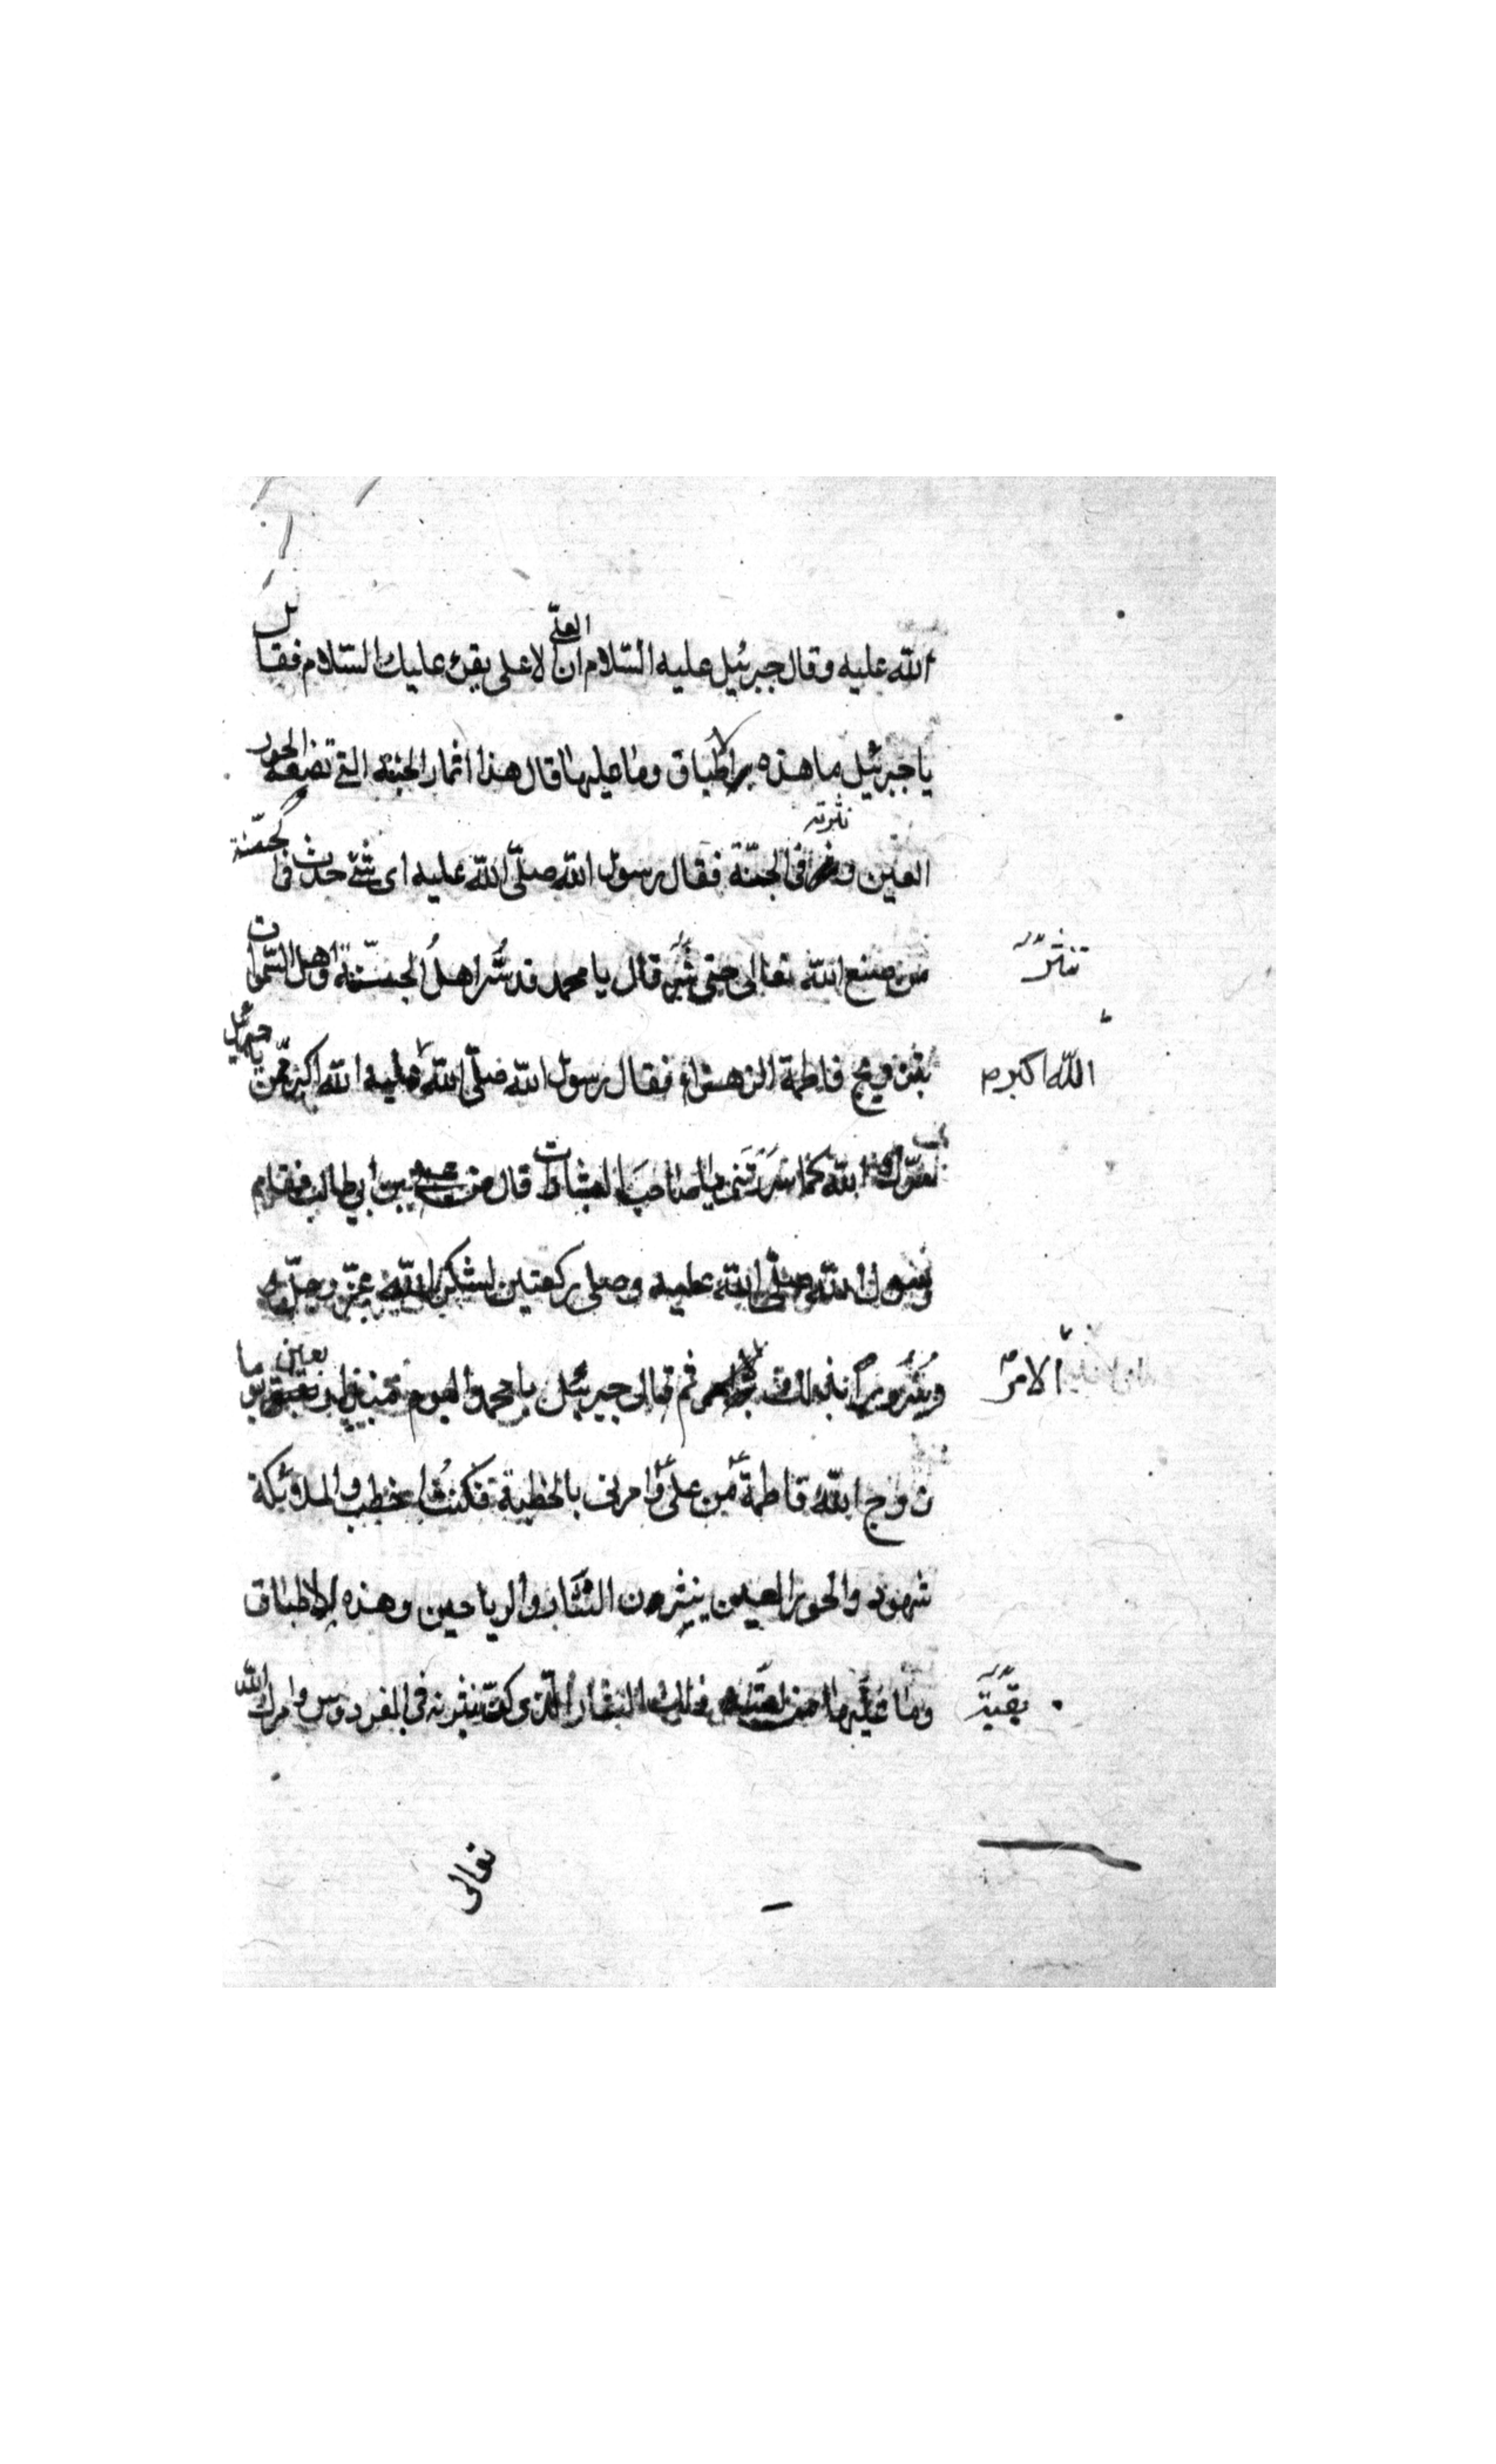 الله عليه وقال جبرئيل عليه السّلام ان العلّي لاعلى يقرئ عليك السّلام فقال
يا جبرئيل ما هذه الاطباق وما عليها قال هذا اثمار الجنة التي تضيعه الحور
العين و نثرته في الجنّة فقال رسول الله صلّى الله عليه اى شئ حدث في الجنّة
من صنع الله تعالى حتى نثر قال يا محمد قد سُرّ اهلُ الجنّة و اهل السّموات
تنثرّ
بتزويج فاطمة الزهراء فقال رسول الله صلّى الله عليه الله اكبر ممّن يا جبرئيل
الله اكبرم
الله كما سَرَرتَنى يا صاحبَ البشارات قال من على بن ابي طالب فقام
رسول الله صلّى الله عليه وصلى ركعتين لشكر الله عزّ وجلّ
بذلك ثم قال جبرئيل يا محمد واليوم
الامرّ
زوج الله فاطمةَ من علىّ وَامرنى بالخطبة فكنتُ اخطب والملائكة
شهود والحور العين ينثرون النثار والرياحين وهذه الاطباق
وما عليها من ذلك النثار الّذى كنّ ينثرنه في الفردوس وامرك الله
بقيّة
تعالى